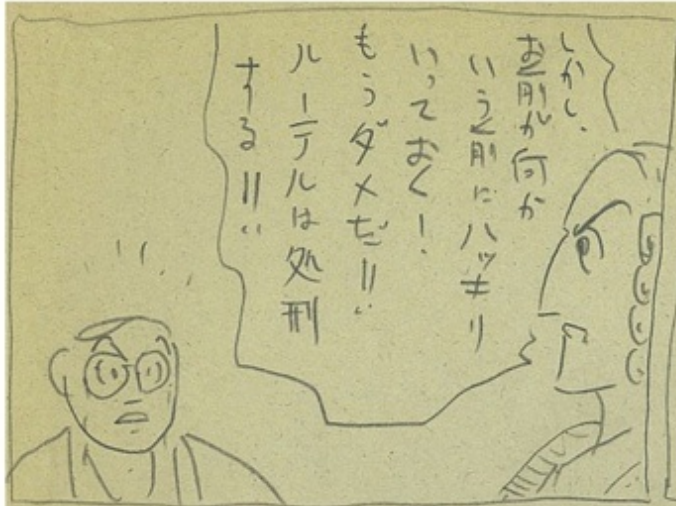 しかし、
お前が何か
いう前にハッキリ
いっておく！
もうダメだ!!
ルーテルは処刑
する!!